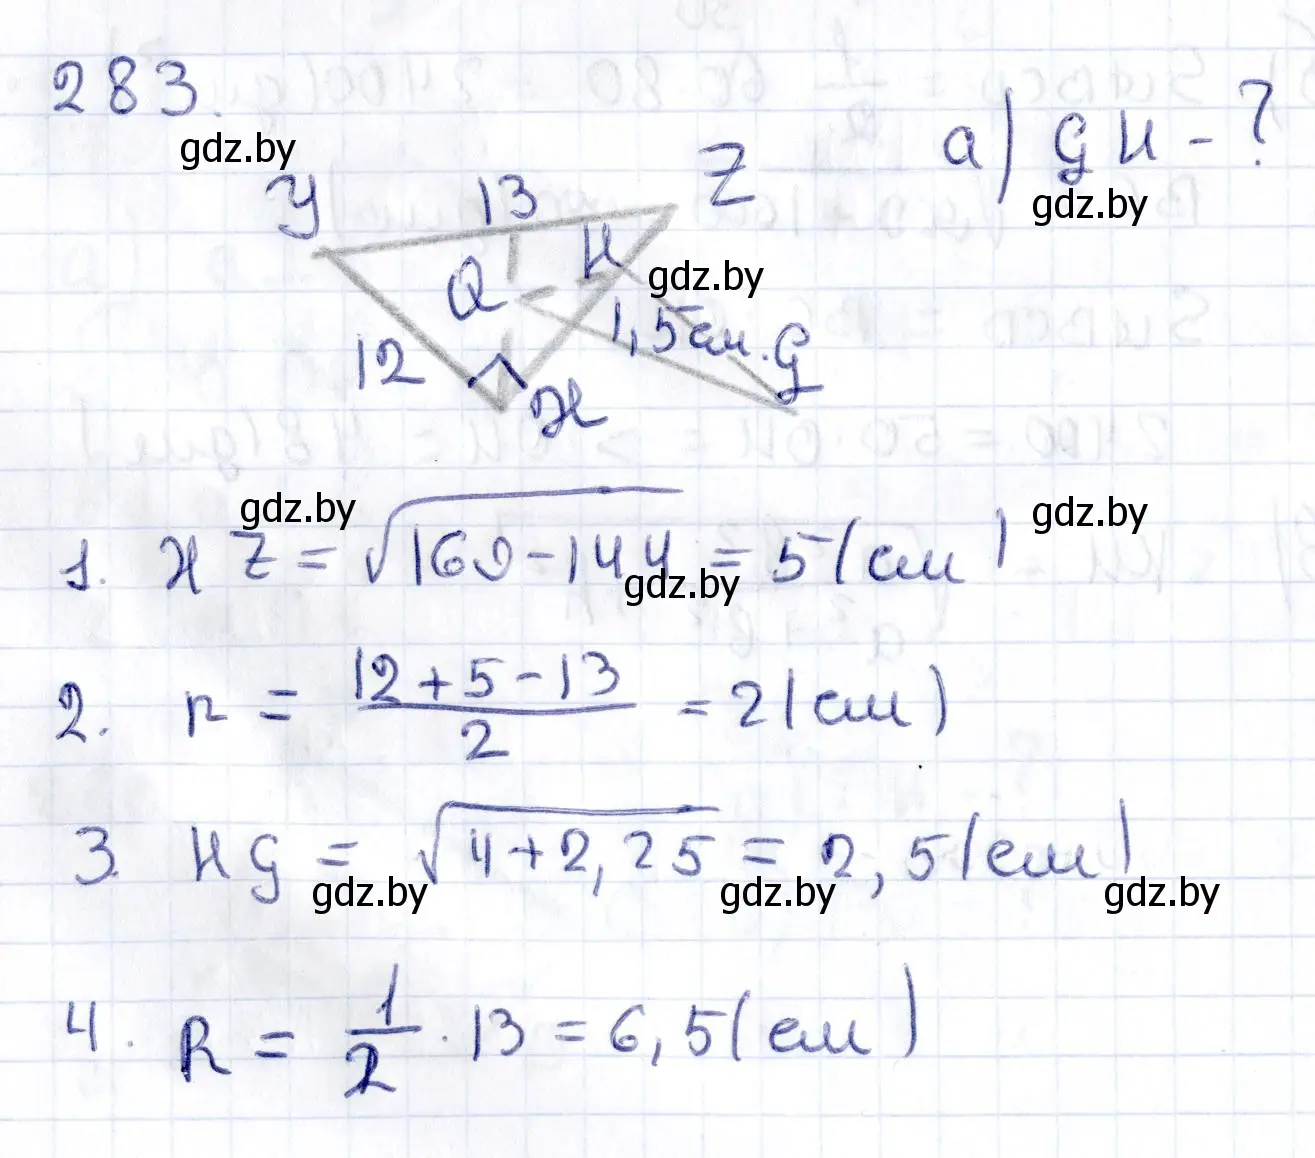 283.
gdz.by
a) GH - ?
gdz.by
Y 13 Z
Q H
gdz.by
12 1,5 см. G
X
gdz.by
gdz.by
1. XZ = √169-144 = 5 (см)
gdz.by
2. r = \frac{12+5-13}{2} = 2 (см)
3. HG = √4+2,25 = 2,5 (см)
gdz.by gdz.by gdz.by
4. R = \frac{1}{2} · 13 = 6,5 (см)